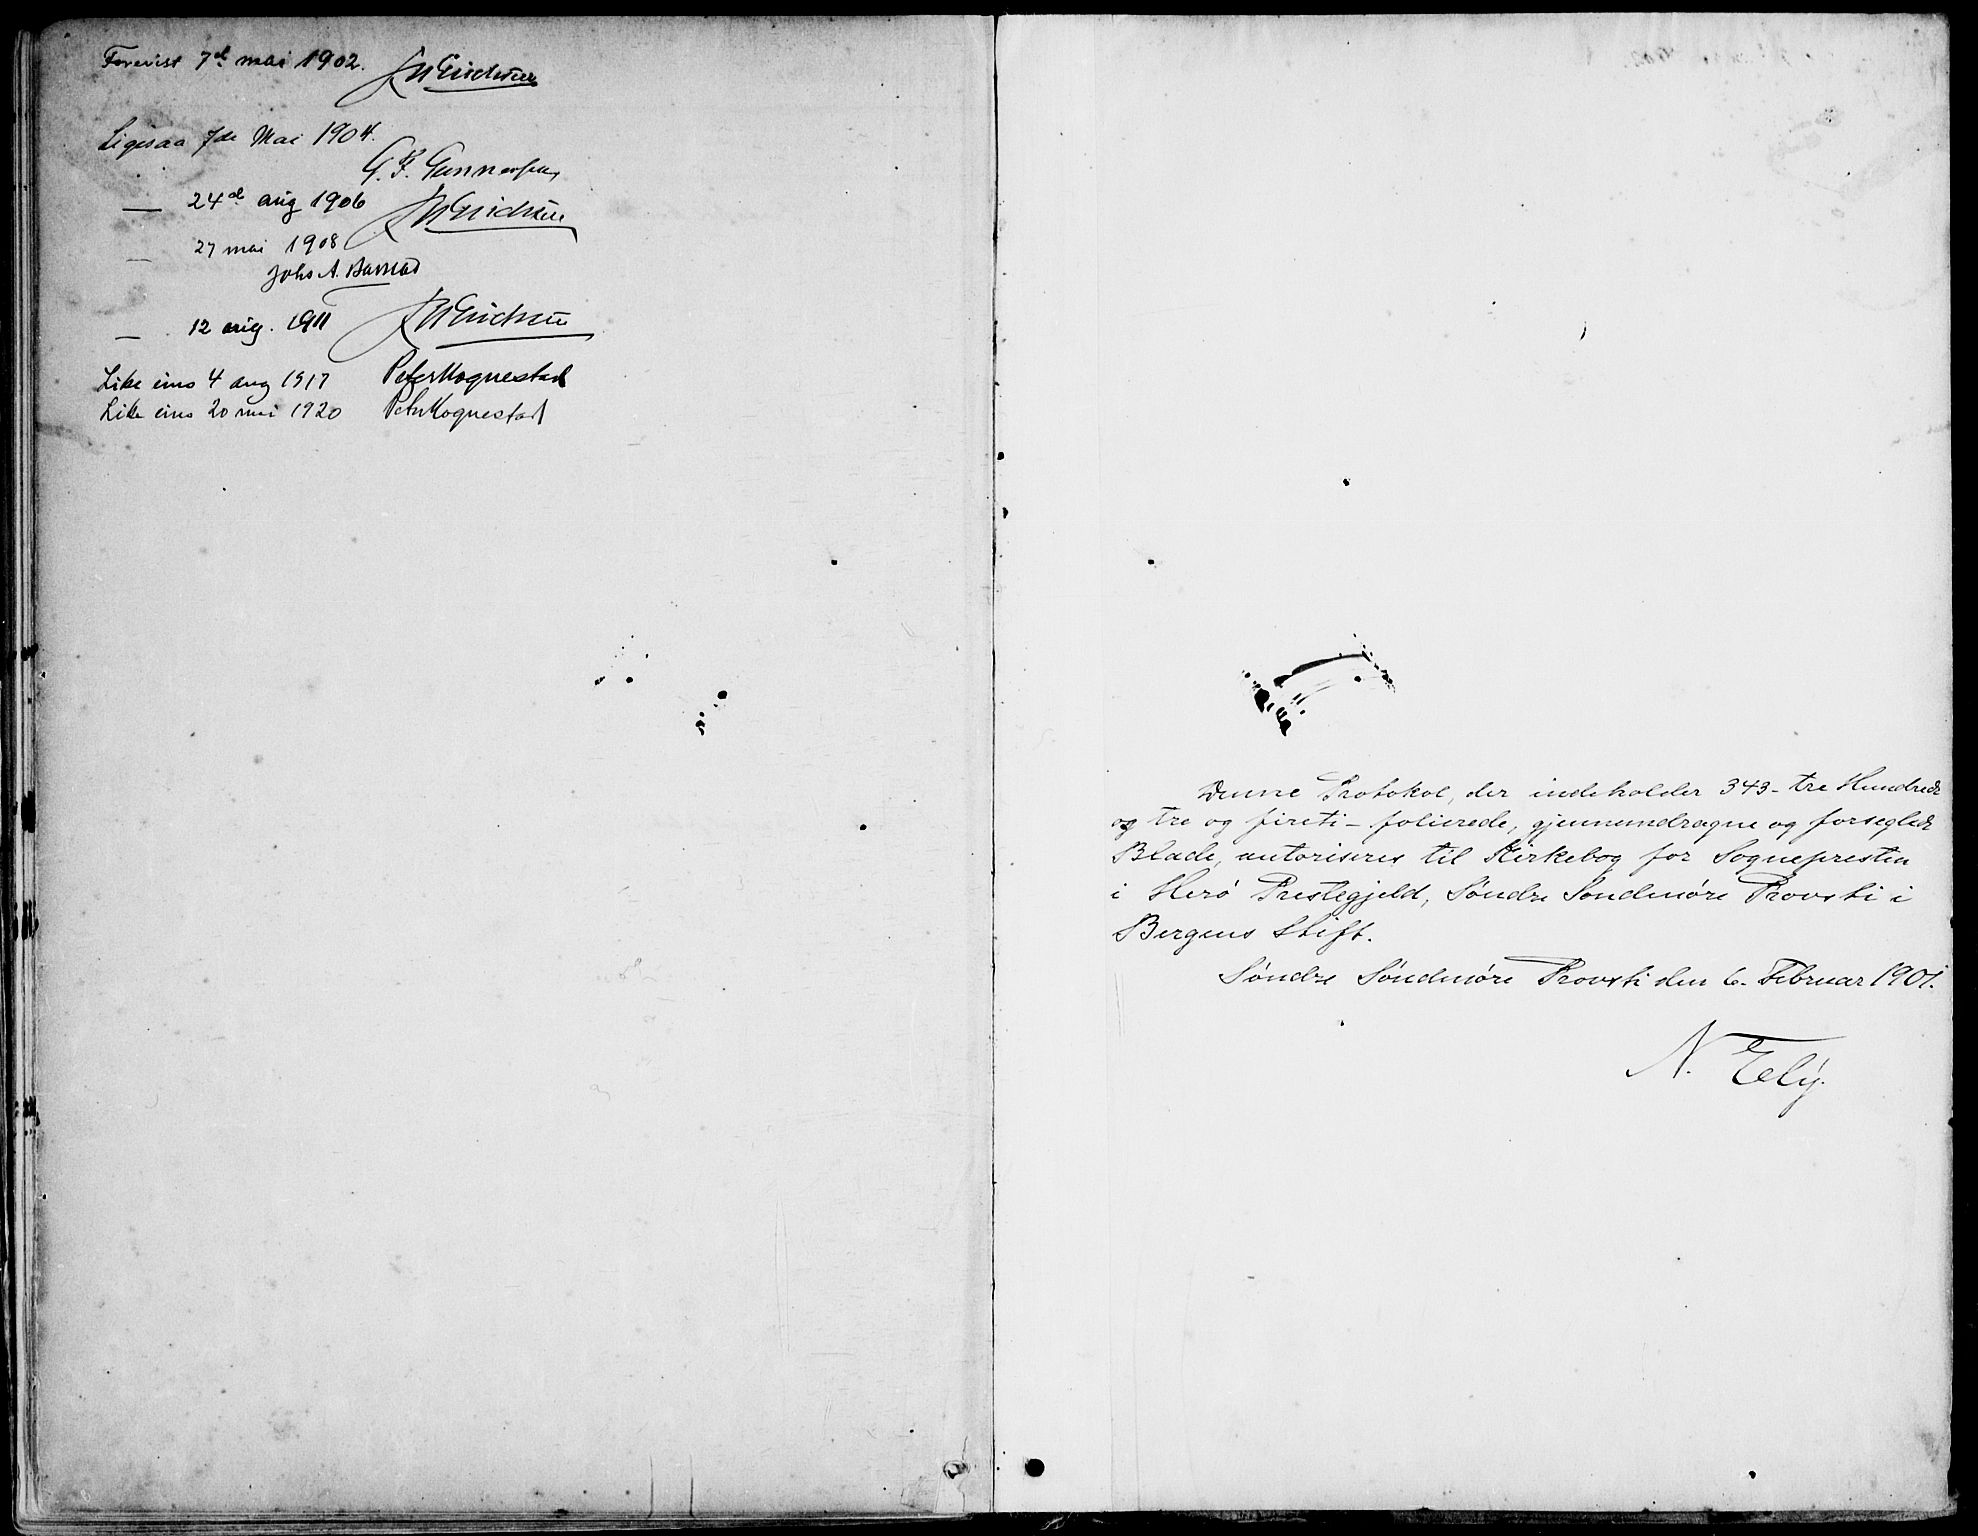 Forevist 7de mai 1902. JWErichsen
Ligesaa 7de Mai 1904.
G. F. Gunnersen
— 24de aug 1906 JWErichsen
— 27 mai 1908
Johs A. Barstad
— 12 aug. 1911 JWErichsen
Like eins 4 aug 1917 Peter Hognestad
Like eins 20 mai 1920 Peter Hognestad
Denne Protokol, der indeholder 343 - tre Hundrede
og tre og firti - folierede, gjennemdragne og forseglede
Blade, autoriseres til Kirkebog for Sognepresten
i Herø Prestegjeld, Søndre Søndmøre Provsti i
Bergens Stift.
Søndre Søndmøre Provsti den 6. Februar 1901.
N.